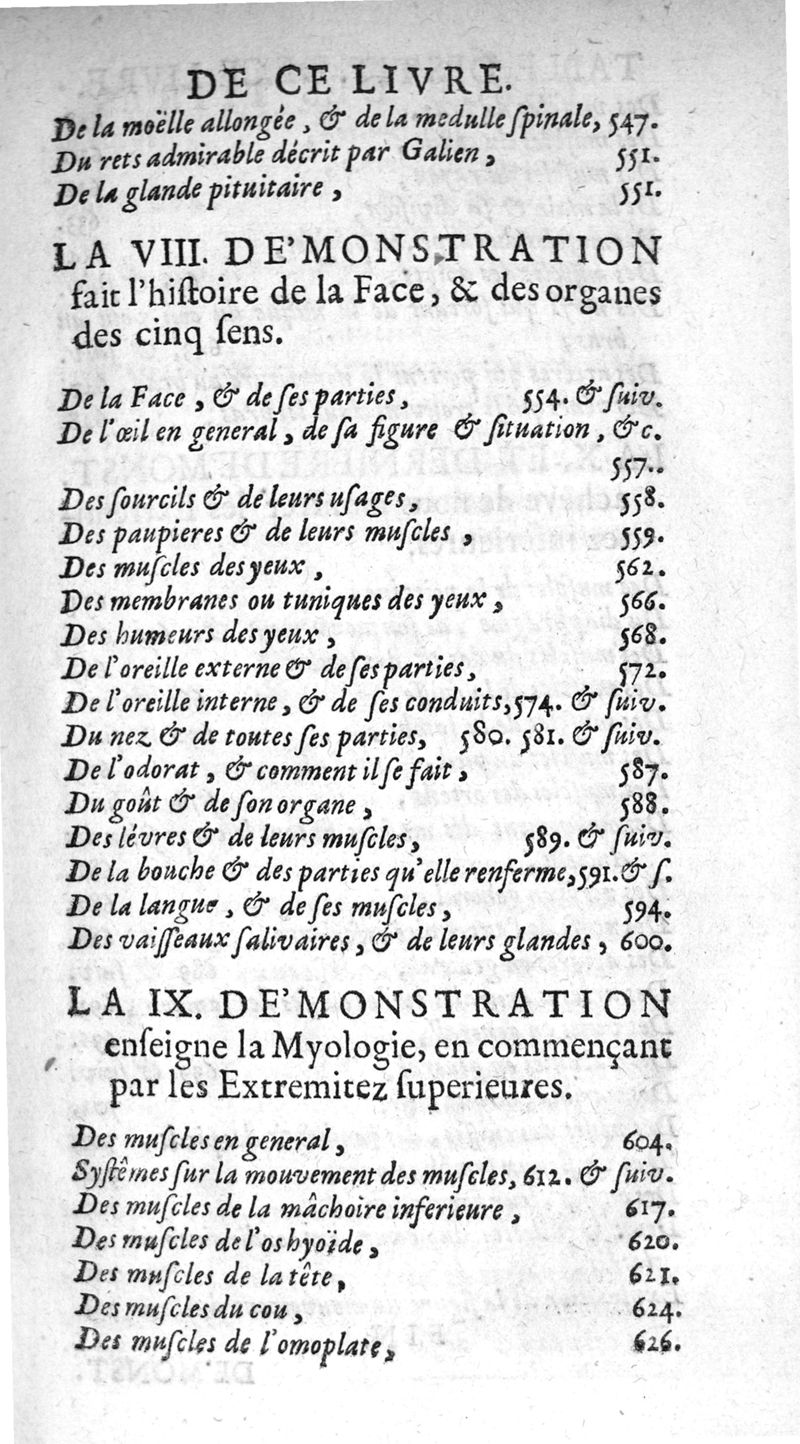 DE CE LIVRE.
De la moëlle allongée, & de la medulle ſpinale, 547.
Du rets admirable décrit par Galien, 551.
De la glande pituitaire, 551.
LA VIII. DE'MONSTRATION
fait l'hiſtoire de la Face, & des organes
des cinq ſens.
De la Face, & de ſes parties, 554. & ſuiv.
De l'œil en general, de ſa figure & ſituation, &c.
557..
Des ſourcils & de leurs uſages, 558.
Des paupieres & de leurs muſcles, 559.
Des muſcles des yeux, 562.
Des membranes ou tuniques des yeux, 566.
Des humeurs des yeux, 568.
De l'oreille externe & de ſes parties, 572.
De l'oreille interne, & de ſes conduits, 574. & ſuiv.
Du nez & de toutes ſes parties, 580. 581. & ſuiv.
De l'odorat, & comment il ſe fait, 587.
Du goût & de ſon organe, 588.
Des lévres & de leurs muſcles, 589. & ſuiv.
De la bouche & des parties qu'elle renferme, 591. & ſ.
De la langue, & de ſes muſcles, 594.
Des vaiſſeaux ſalivaires, & de leurs glandes, 600.
LA IX. DE'MONSTRATION
enſeigne la Myologie, en commençant
par les Extremitez ſuperieures.
Des muſcles en general, 604.
Syſtêmes ſur la mouvement des muſcles, 612. & ſuiv.
Des muſcles de la mâchoire inferieure, 617.
Des muſcles de l'os hyoïde, 620.
Des muſcles de la tête, 621.
Des muſcles du cou, 624.
Des muſcles de l'omoplate, 626.